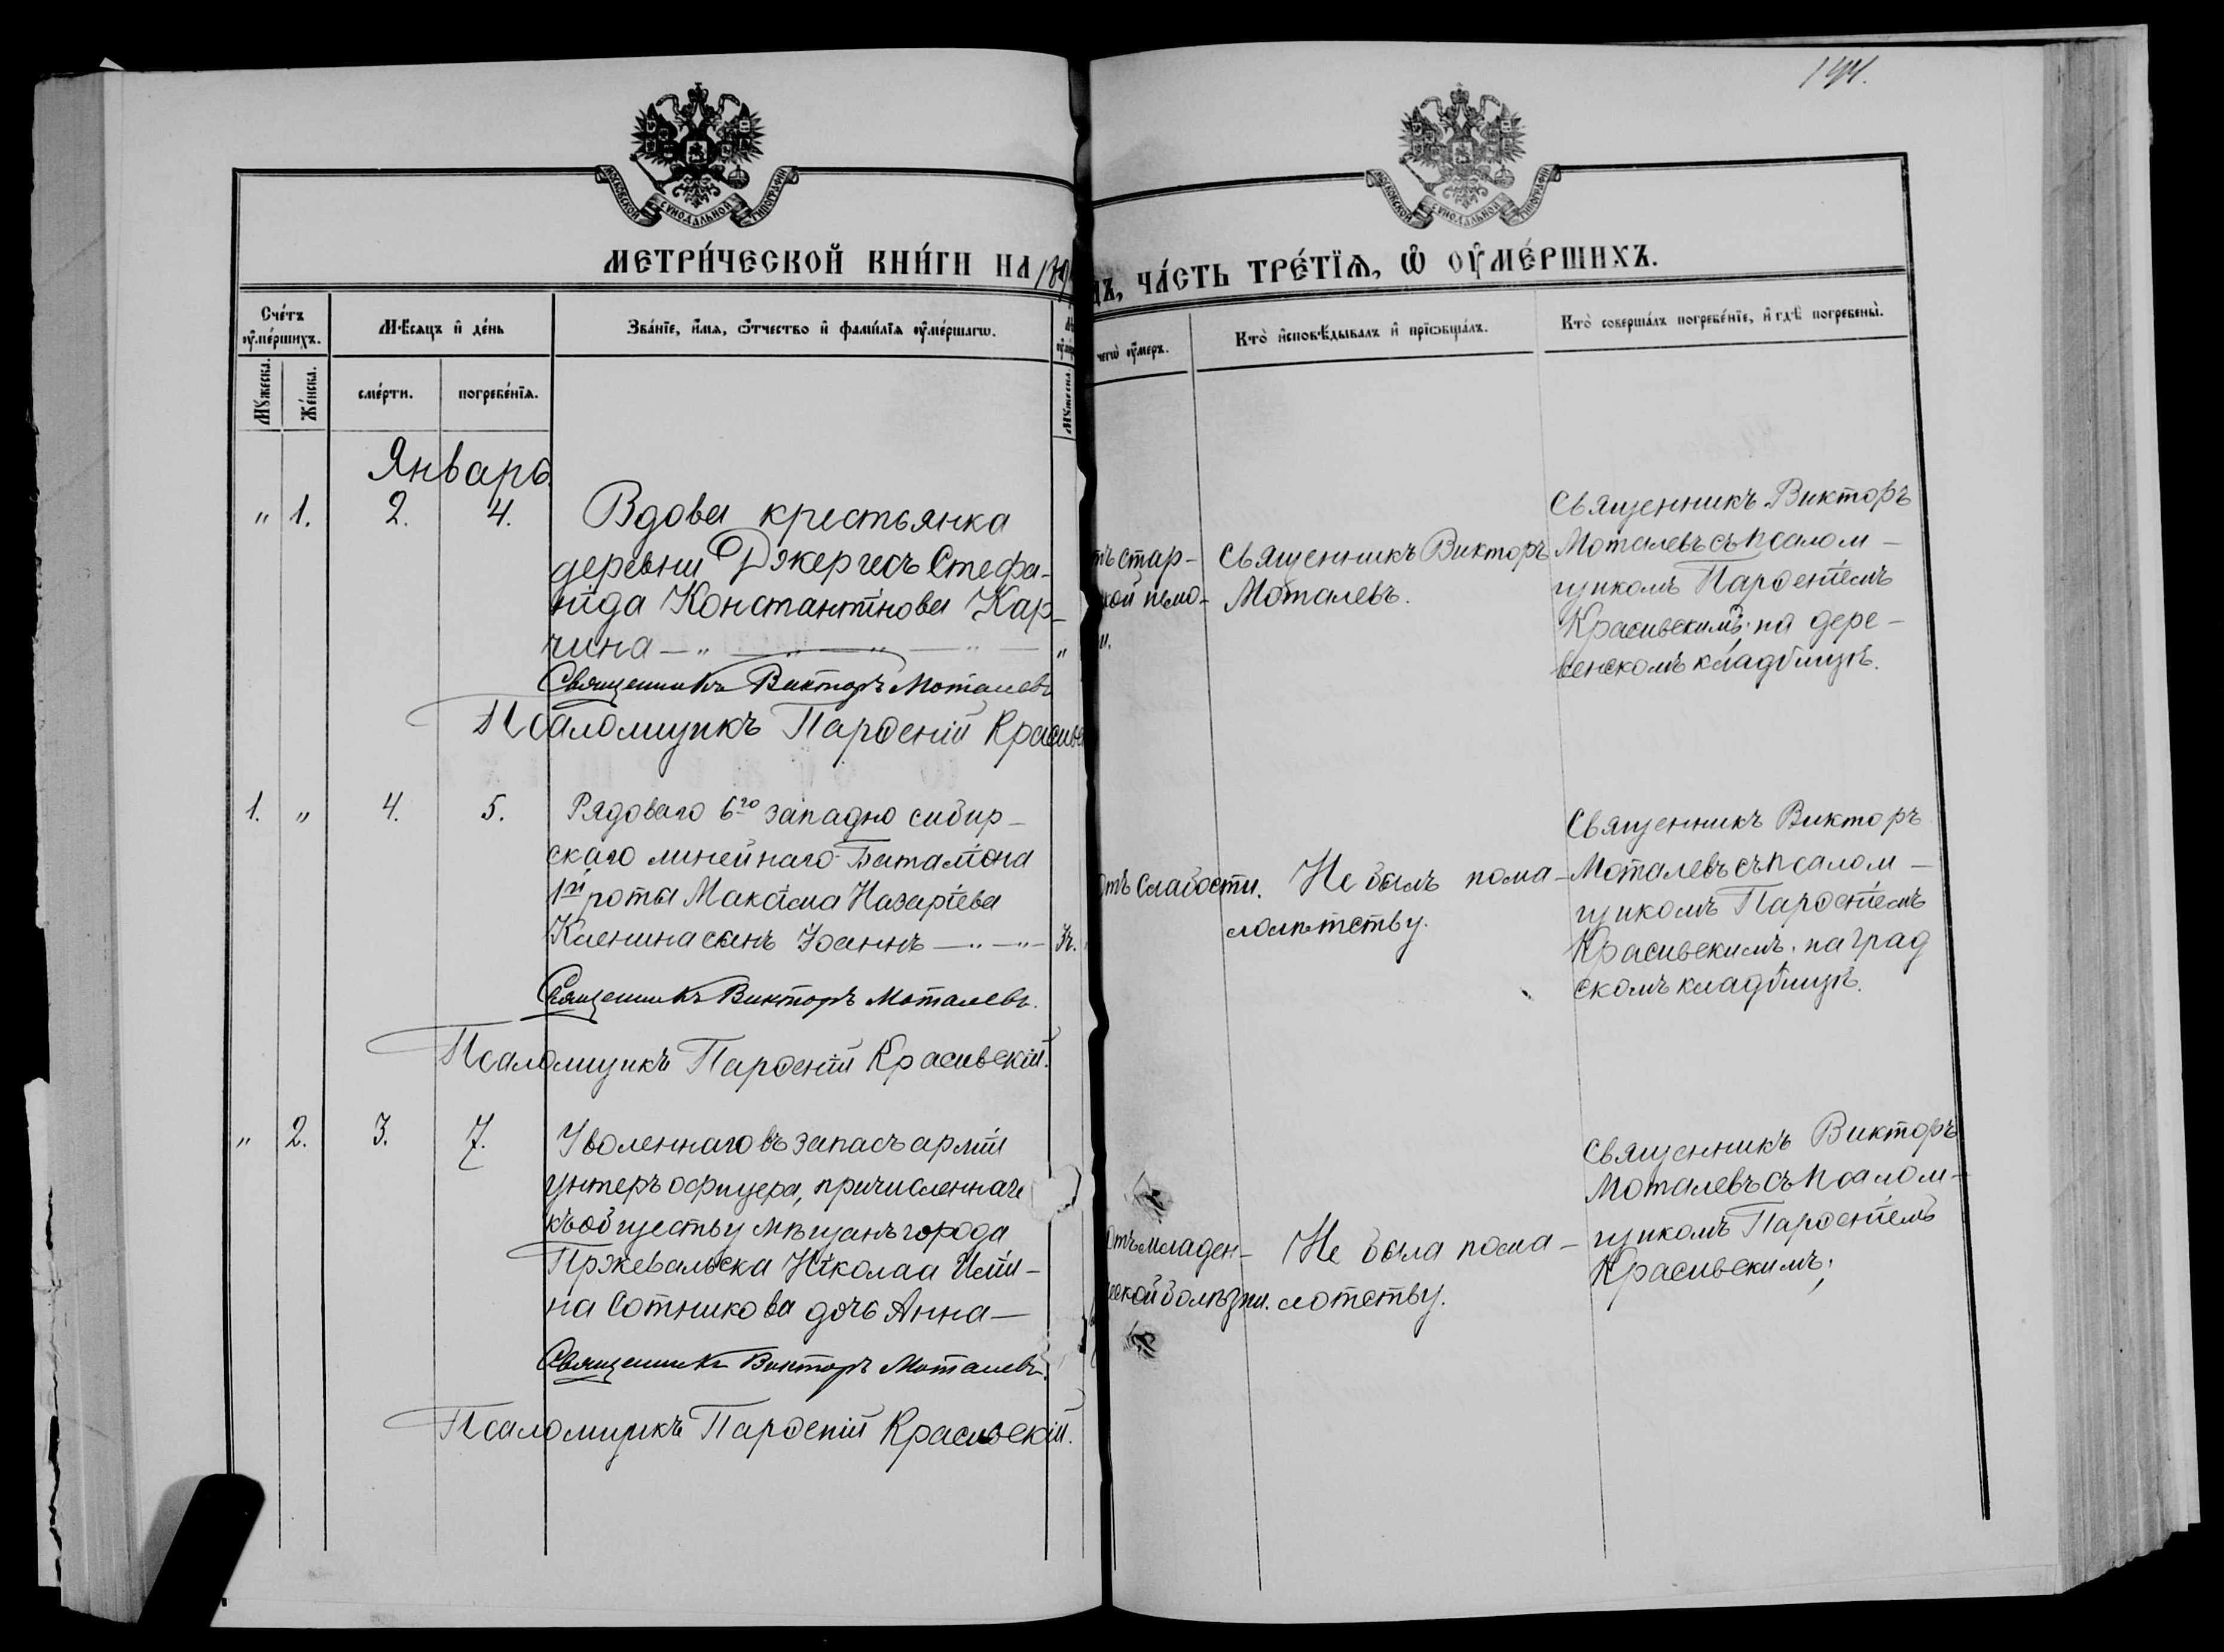 194.
МОСКОВСКОЙ СУНОДАЛЬНОЙ ТИПОГРАФІИ
МОСКОВСКОЙ СУНОДАЛЬНОЙ ТИПОГРАФІИ
МЕТРИ́ЧЕСКОЙ КНИ́ГИ НА 189
ДЪ, ЧА́СТЬ ТРЕ́ТЇѦ, Ѡ ОУМЕ́РШИХЪ.
Сче́тъ оуме́ршихъ.
Мѣсяцъ и де́нь
Зва́нїе, и́мѧ, ѻ́тчество и фами́лїѧ оуме́ршагѡ.
чегѡ̀ оу́меръ.
Кто̀ и҆сповѣ́дывалъ и҆ прїѡбща́лъ.
Кто̀ соверша́лъ погребе́нїе, и҆ гдѣ̀ погребены̀.
Мꙋ́жеска.
Же́нска.
сме́рти.
погребе́нїѧ.
Мꙋ́жеска.
Январь
" 1. 2. 4. Вдова крестьянка
деревни Джергесъ Стефа-
нида Константінова Кар-
чина — " — " — " — "
Священникъ Викторъ Моталевъ
Псаломщикъ Парѳеній Красивс
тъ стар-
кой немо-
и.
Священникъ Викторъ
Моталевъ.
Священникъ Викторъ
Моталевъ съ псалом-
щикомъ Парѳеніемъ
Красивскимъ; на дере-
венскомъ кладбищѣ.
1. " 4. 5. Рядоваго 6го западно сибир-
скаго линейнаго Баталіона
1й роты Максима Назаріева
Каенина сынъ Іоаннъ — " — " — ¾.
Священникъ Викторъ Моталевъ.
Псаломщикъ Парѳеній Красивскій.
Отъ слабости.
Не былъ по ма-
лолѣтству.
Священникъ Викторъ
Моталевъ съ псалом-
щикомъ Парѳеніемъ
Красивскимъ. на град
скомъ кладбищѣ.
" 2. 3. 7. Уволеннаго въ запасъ арміи
унтеръ офицера, причисленнаго
къ обществу мѣщанъ города
Пржевальска Николаа Ильи-
на Сотникова дочь Анна —
Священникъ Викторъ Моталевъ.
Псаломщикъ Парѳеній Красивскій.
Отъ младен-
ческой болѣзни.
Не была по ма-
лотству.
Священникъ Викторъ
Моталевъ съ псалом-
щикомъ Парѳеніемъ
Красивскимъ;